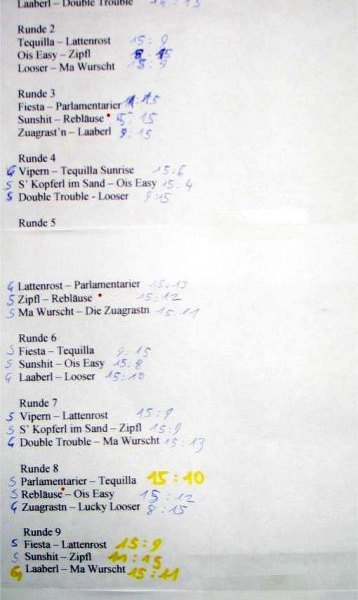 Laaberl – Double Trouble 14:15
Runde 2
Tequilla – Lattenrost 15:9
Ois Easy – Zipfl 8:15
Looser – Ma Wurscht 15:9
Runde 3
Fiesta – Parlamentarier 11:15
Sunshit – Rebläuse 5:15
Zuagrast'n – Laaberl 9:15
Runde 4
G Vipern – Tequilla Sunrise 15:6
S S' Kopferl im Sand – Ois Easy 15:4
S Double Trouble - Looser 9:15
Runde 5
G Lattenrost – Parlamentarier 15:13
S Zipfl – Rebläuse 15:12
S Ma Wurscht – Die Zuagrastn 15:11
Runde 6
S Fiesta – Tequilla 9:15
S Sunshit – Ois Easy 15:8
G Laaberl – Looser 15:10
Runde 7
S Vipern – Lattenrost 15:9
S S' Kopferl im Sand – Zipfl 15:9
G Double Trouble – Ma Wurscht 15:13
Runde 8
S Parlamentarier – Tequilla 15:10
S Rebläuse – Ois Easy 15:12
G Zuagrastn – Lucky Looser 8:15
Runde 9
S Fiesta – Lattenrost 15:9
S Sunshit – Zipfl 11:15
G Laaberl – Ma Wurscht 15:11